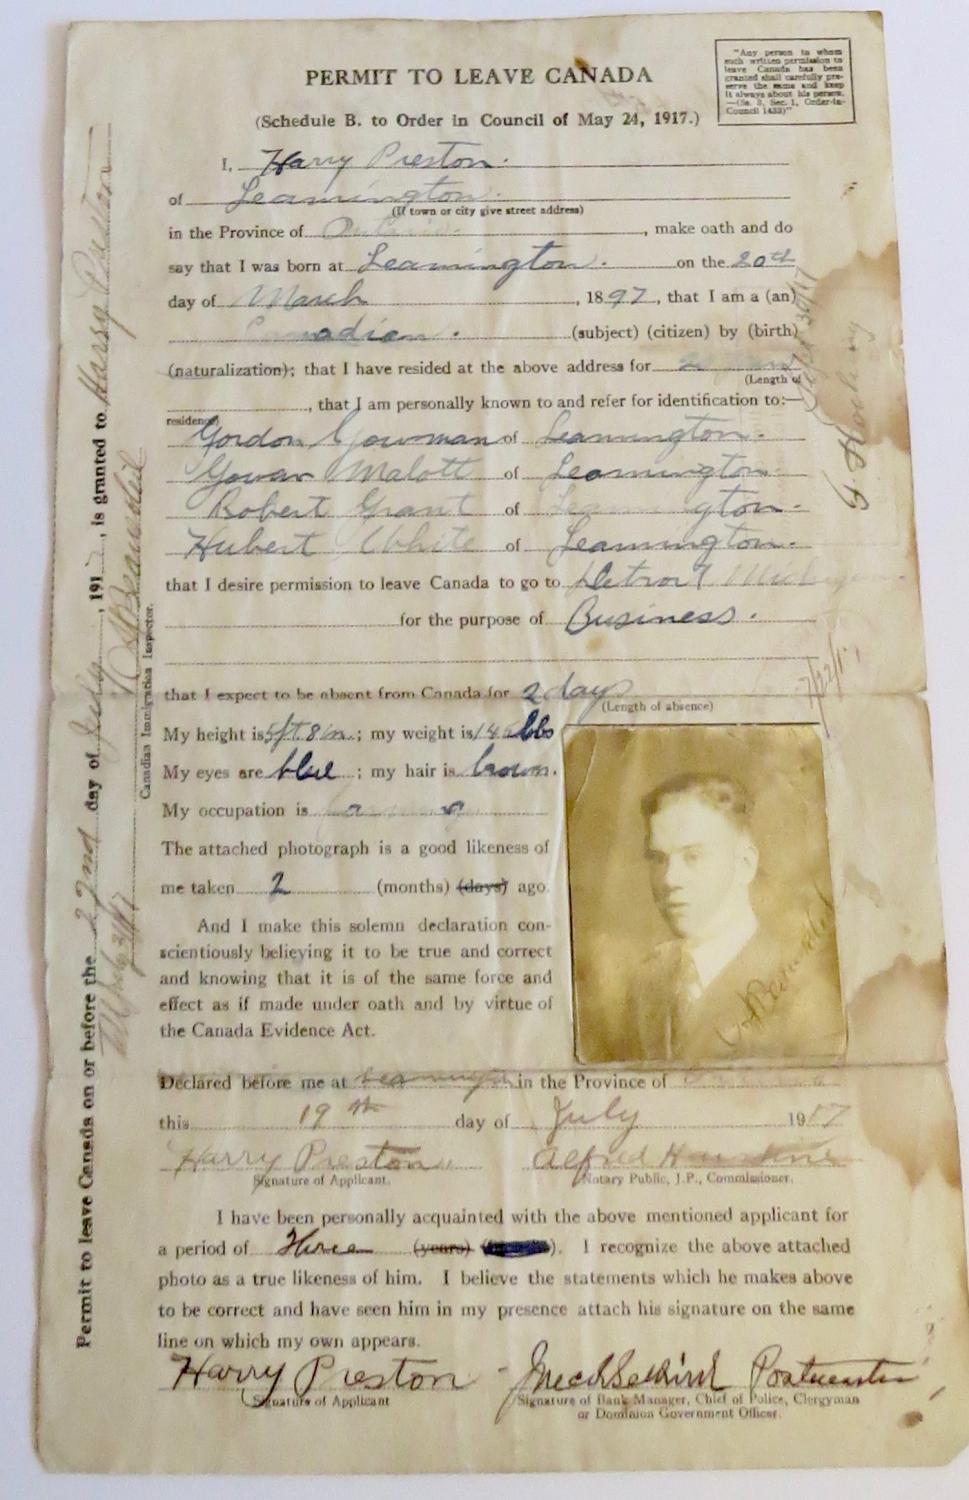 PERMIT TO LEAVE CANADA
"Any person to whom
such written permission to
leave Canada has been
granted shall carefully pre-
serve the same and keep
it always about his person.
—(Ss. 3, Sec. 1, Order-in-
Council 1433)"
(Schedule B. to Order in Council of May 24, 1917.)
I, Harry Preston.
of Leamington.
(If town or city give street address)
in the Province of Ontario. , make oath and do
say that I was born at Leamington. on the 20th
day of March , 1897, that I am a (an)
Canadian. (subject) (citizen) by (birth)
(naturalization); that I have resided at the above address for
(Length of
residence) , that I am personally known to and refer for identification to:—
Gordon Cowman of Leamington.
Gowan Malott of Leamington.
Robert Grant of Leamington.
Hubert White of Leamington.
that I desire permission to leave Canada to go to Detroit Michigan
for the purpose of Business.
that I expect to be absent from Canada for 2 days
(Length of absence)
My height is 5ft 8in.; my weight is lbs
My eyes are blue; my hair is brown.
My occupation is
The attached photograph is a good likeness of
me taken 2 (months) (days) ago.
And I make this solemn declaration con-
scientiously believing it to be true and correct
and knowing that it is of the same force and
effect as if made under oath and by virtue of
the Canada Evidence Act.
Declared before me at Leamington in the Province of
this 19th day of July 1917
Harry Preston. Alfred
Signature of Applicant. Notary Public, J.P., Commissioner.
I have been personally acquainted with the above mentioned applicant for
a period of Three (years) . I recognize the above attached
photo as a true likeness of him. I believe the statements which he makes above
to be correct and have seen him in my presence attach his signature on the same
line on which my own appears.
Harry Preston Postmaster
Signature of Applicant Signature of Bank Manager, Chief of Police, Clergyman
or Dominion Government Officer.
Permit to leave Canada on or before the 22nd day of July, 191 , is granted to Harry Preston
Canadian Immigration Inspector.